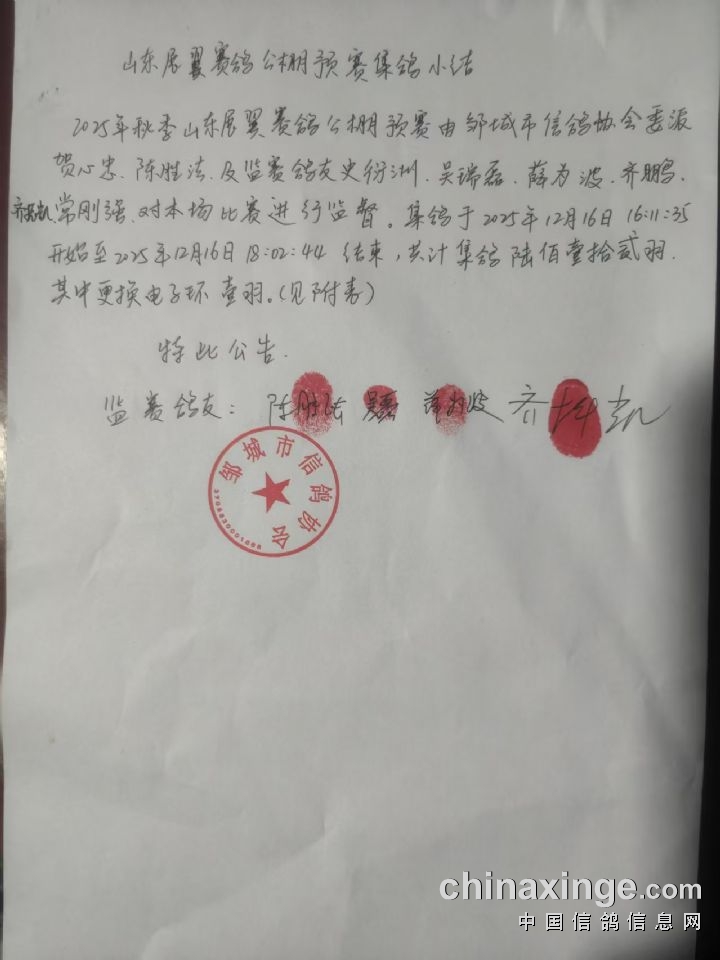 山东展翼赛鸽公棚预赛集鸽小结
2025年秋季山东展翼赛鸽公棚预赛由邹城市信鸽协会委派
贺心忠、陈胜法、及监赛鸽友史衍洲、吴瑞磊、薛为波、齐鹏、
常刚强、对本场比赛进行监督。集鸽于2025年12月16日 16:11:35
开始至2025年12月16日 18:02:44 结束，共计集鸽陆佰壹拾贰羽.
其中更换电子环壹羽。(见附表)
特此公告.
监赛鸽友: 陈胜法 薛为波 齐坤凯
邹城市信鸽协会
chinaxinge.com
中国信鸽信息网